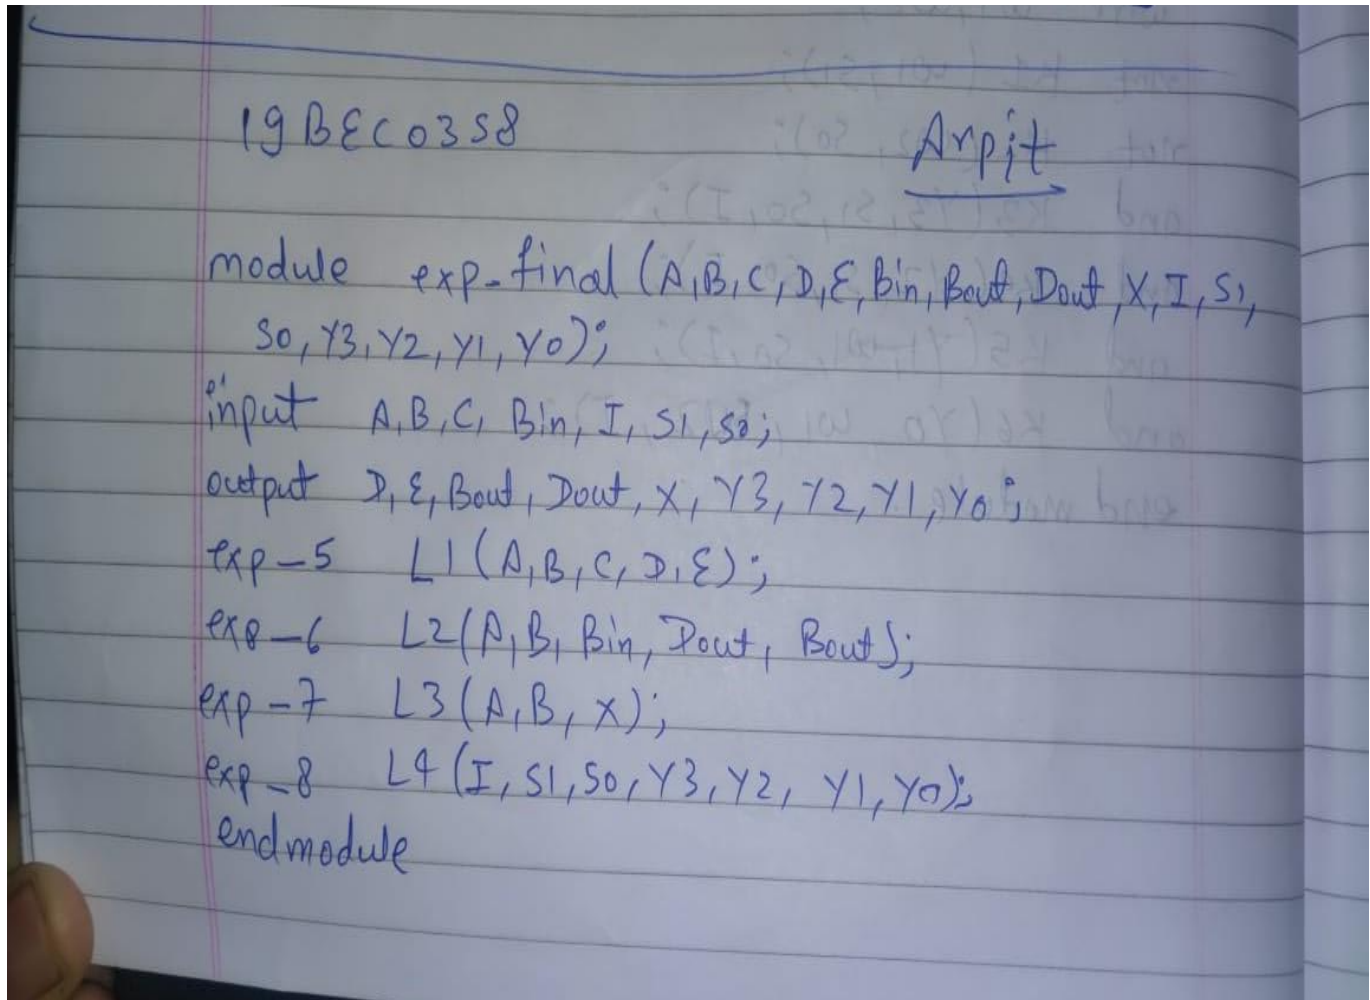 19BEC0358 Arpit
module exp_final (A,B,C,D,E,Bin,Bout,Dout,X,I,S1,
S0,Y3,Y2,Y1,Y0);
input A,B,C,Bin,I,S1,S0;
output D,E,Bout,Dout,X,Y3,Y2,Y1,Y0;
exp_5 L1(A,B,C,D,E);
exp_6 L2(A,B,Bin,Dout,Bout);
exp_7 L3(A,B,X);
exp_8 L4(I,S1,S0,Y3,Y2,Y1,Y0);
endmodule